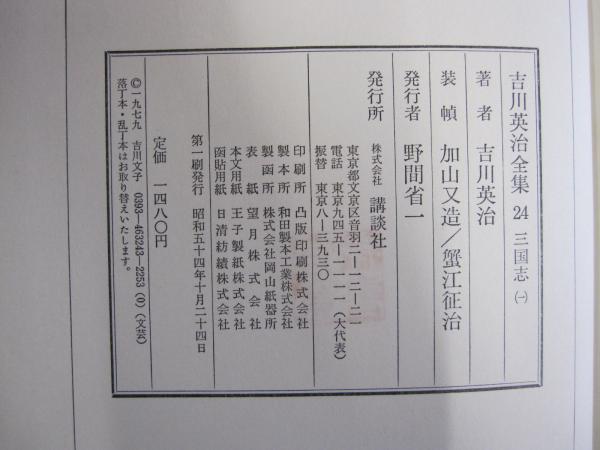 吉川英治全集 24 三国志 (一)
著者 吉川英治
装幀 加山又造/蟹江征治
発行者 野間省一
発行所 株式会社 講談社
東京都文京区音羽二―一二―二一
電話 東京九四五―一一一一(大代表)
振替 東京八―三九三〇
印刷所 凸版印刷株式会社
製本所 和田製本工業株式会社
製函所 株式会社岡山紙器所
表紙 望月株式会社
本文用紙 王子製紙株式会社
函貼用紙 日清紡績株式会社
第一刷発行 昭和五十四年十月二十四日
定価 一四八〇円
©一九七九 吉川文子 0393―463243―2253 (0) (文芸)
落丁本・乱丁本はお取り替えいたします。